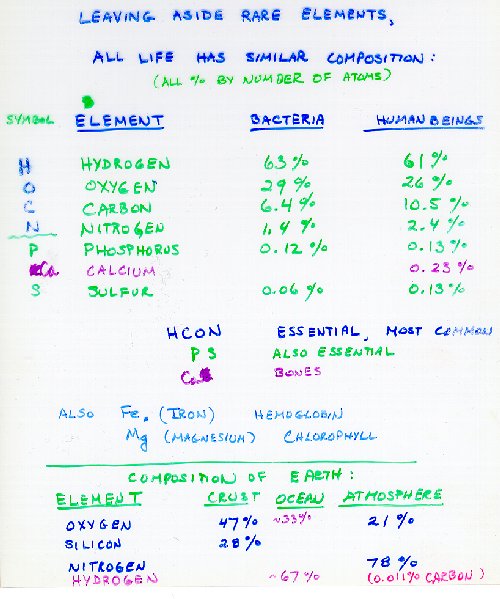 LEAVING ASIDE RARE ELEMENTS,
ALL LIFE HAS SIMILAR COMPOSITION:
(ALL % BY NUMBER OF ATOMS)
SYMBOL ELEMENT BACTERIA HUMAN BEINGS
H HYDROGEN 63% 61%
O OXYGEN 29% 26%
C CARBON 6.4% 10.5%
N NITROGEN 1.4% 2.4%
P PHOSPHORUS 0.12% 0.13%
Ca CALCIUM 0.23%
S SULFUR 0.06% 0.13%
HCON ESSENTIAL, MOST COMMON
P S ALSO ESSENTIAL
Ca BONES
ALSO Fe. (IRON) HEMOGLOBIN
Mg (MAGNESIUM) CHLOROPHYLL
COMPOSITION OF EARTH:
ELEMENT CRUST OCEAN ATMOSPHERE
OXYGEN 47% ~33% 21%
SILICON 28%
NITROGEN 78%
HYDROGEN ~67% (0.011% CARBON)